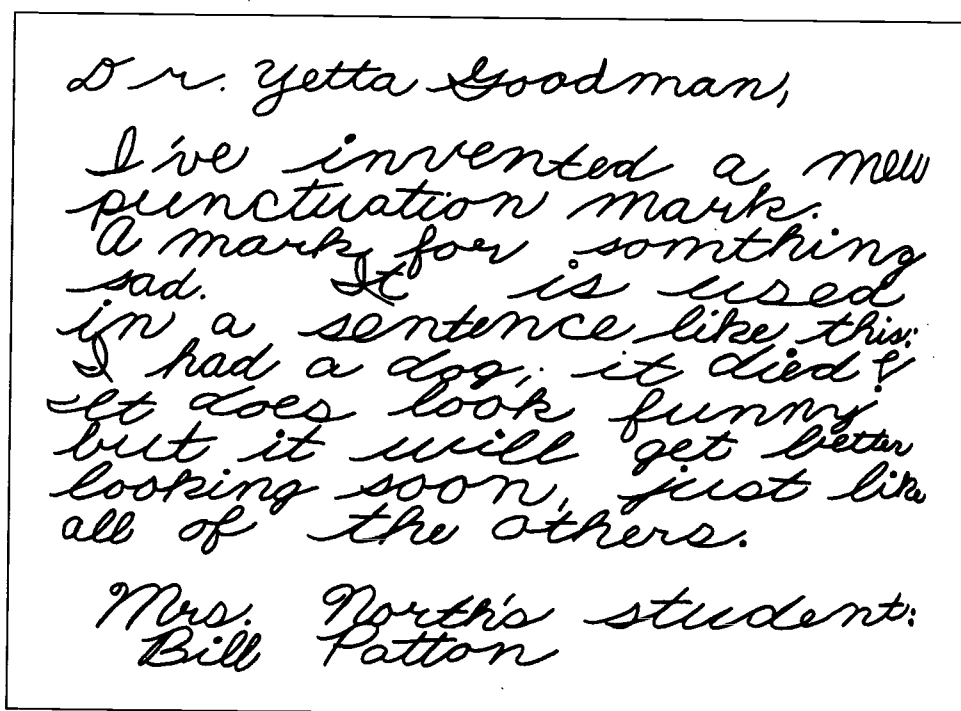 Dr. Yetta Goodman,
I've invented a new
punctuation mark.
A mark for somthing
sad. It is used
in a sentence like this:
I had a dog, it died
It does look funny
but it will get better
looking soon, just like
all of the others.
Mrs. North's student:
Bill Patton